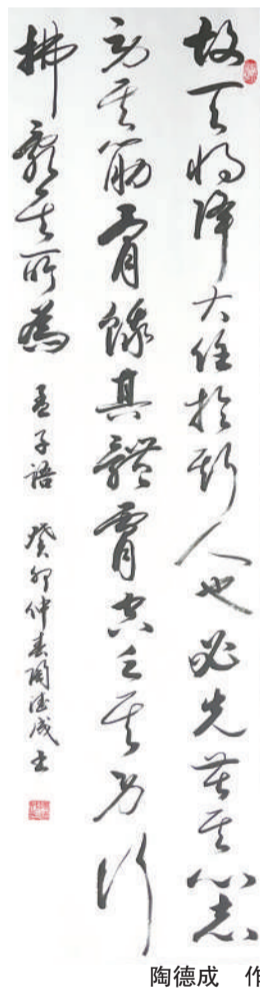 故天将降大任於斯人也必先苦其心志
劳其筋骨餓其體膚空乏其身行
拂亂其所為 孟子語 癸卯仲春陶德成书
陶德成 作